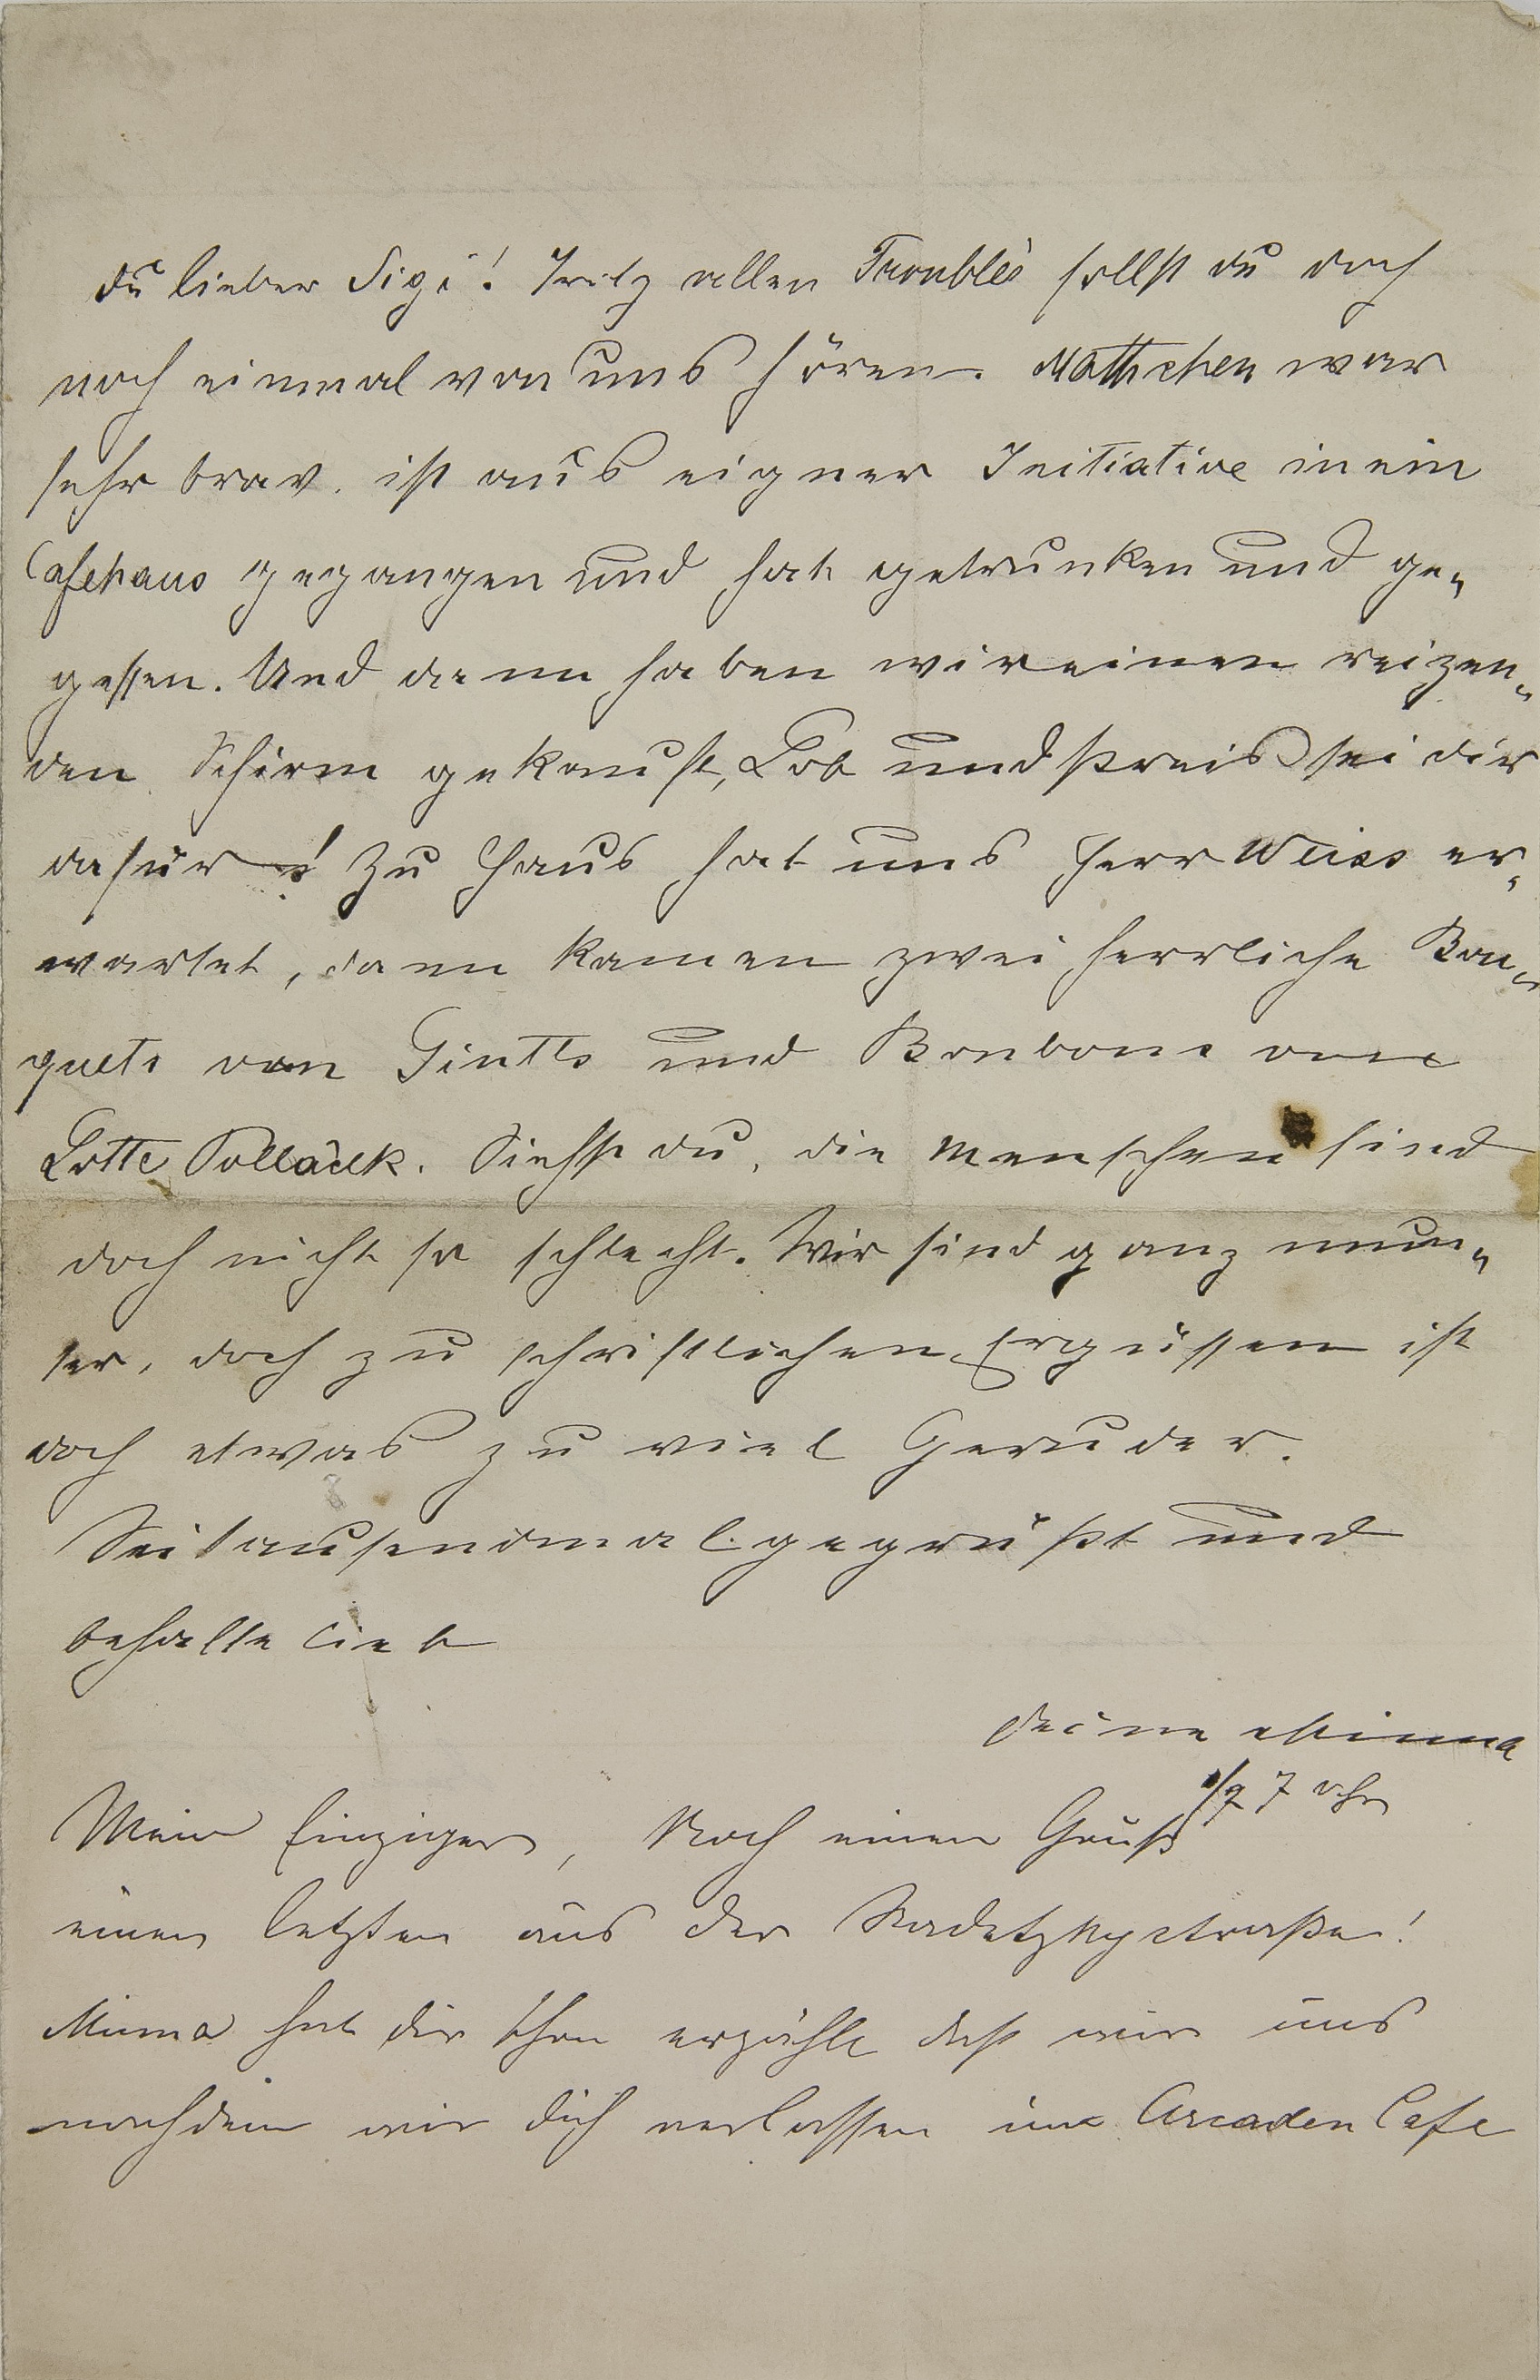 Du lieber Sigi! Trotz allen Troublés sollst du doch
noch einmal von uns hören. Matthchen war
sehr brav. ist aus eigner Initiative in ein
Cafehaus gegangen und hat getrunken und ge-
gessen. Und dann haben wir einen reizen-
den Schirm gekauft, Lob und Preis sei dir
dafür! Zu Haus hat uns Herr Weiss er-
wartet, dann kamen zwei herrliche Bou-
quets von Gintls und Bonbons von
Lotte Pollaczek. Siehst du, die Menschen sind
doch nicht so schlecht. Wir sind ganz mun-
ter, doch zu schriftlichen Ergüssen ist
doch etwas zu viel
Sei tausendmal gegrüßt und
behalte lieb
deine Minna
1/2 7 Uhr
Mein Einziger, Noch einen Gruß
einen letzten aus der Radetzkystraße!
Minna hat dir schon erzählt daß wir uns
nachdem wir dich verlassen im Arcaden Cafe